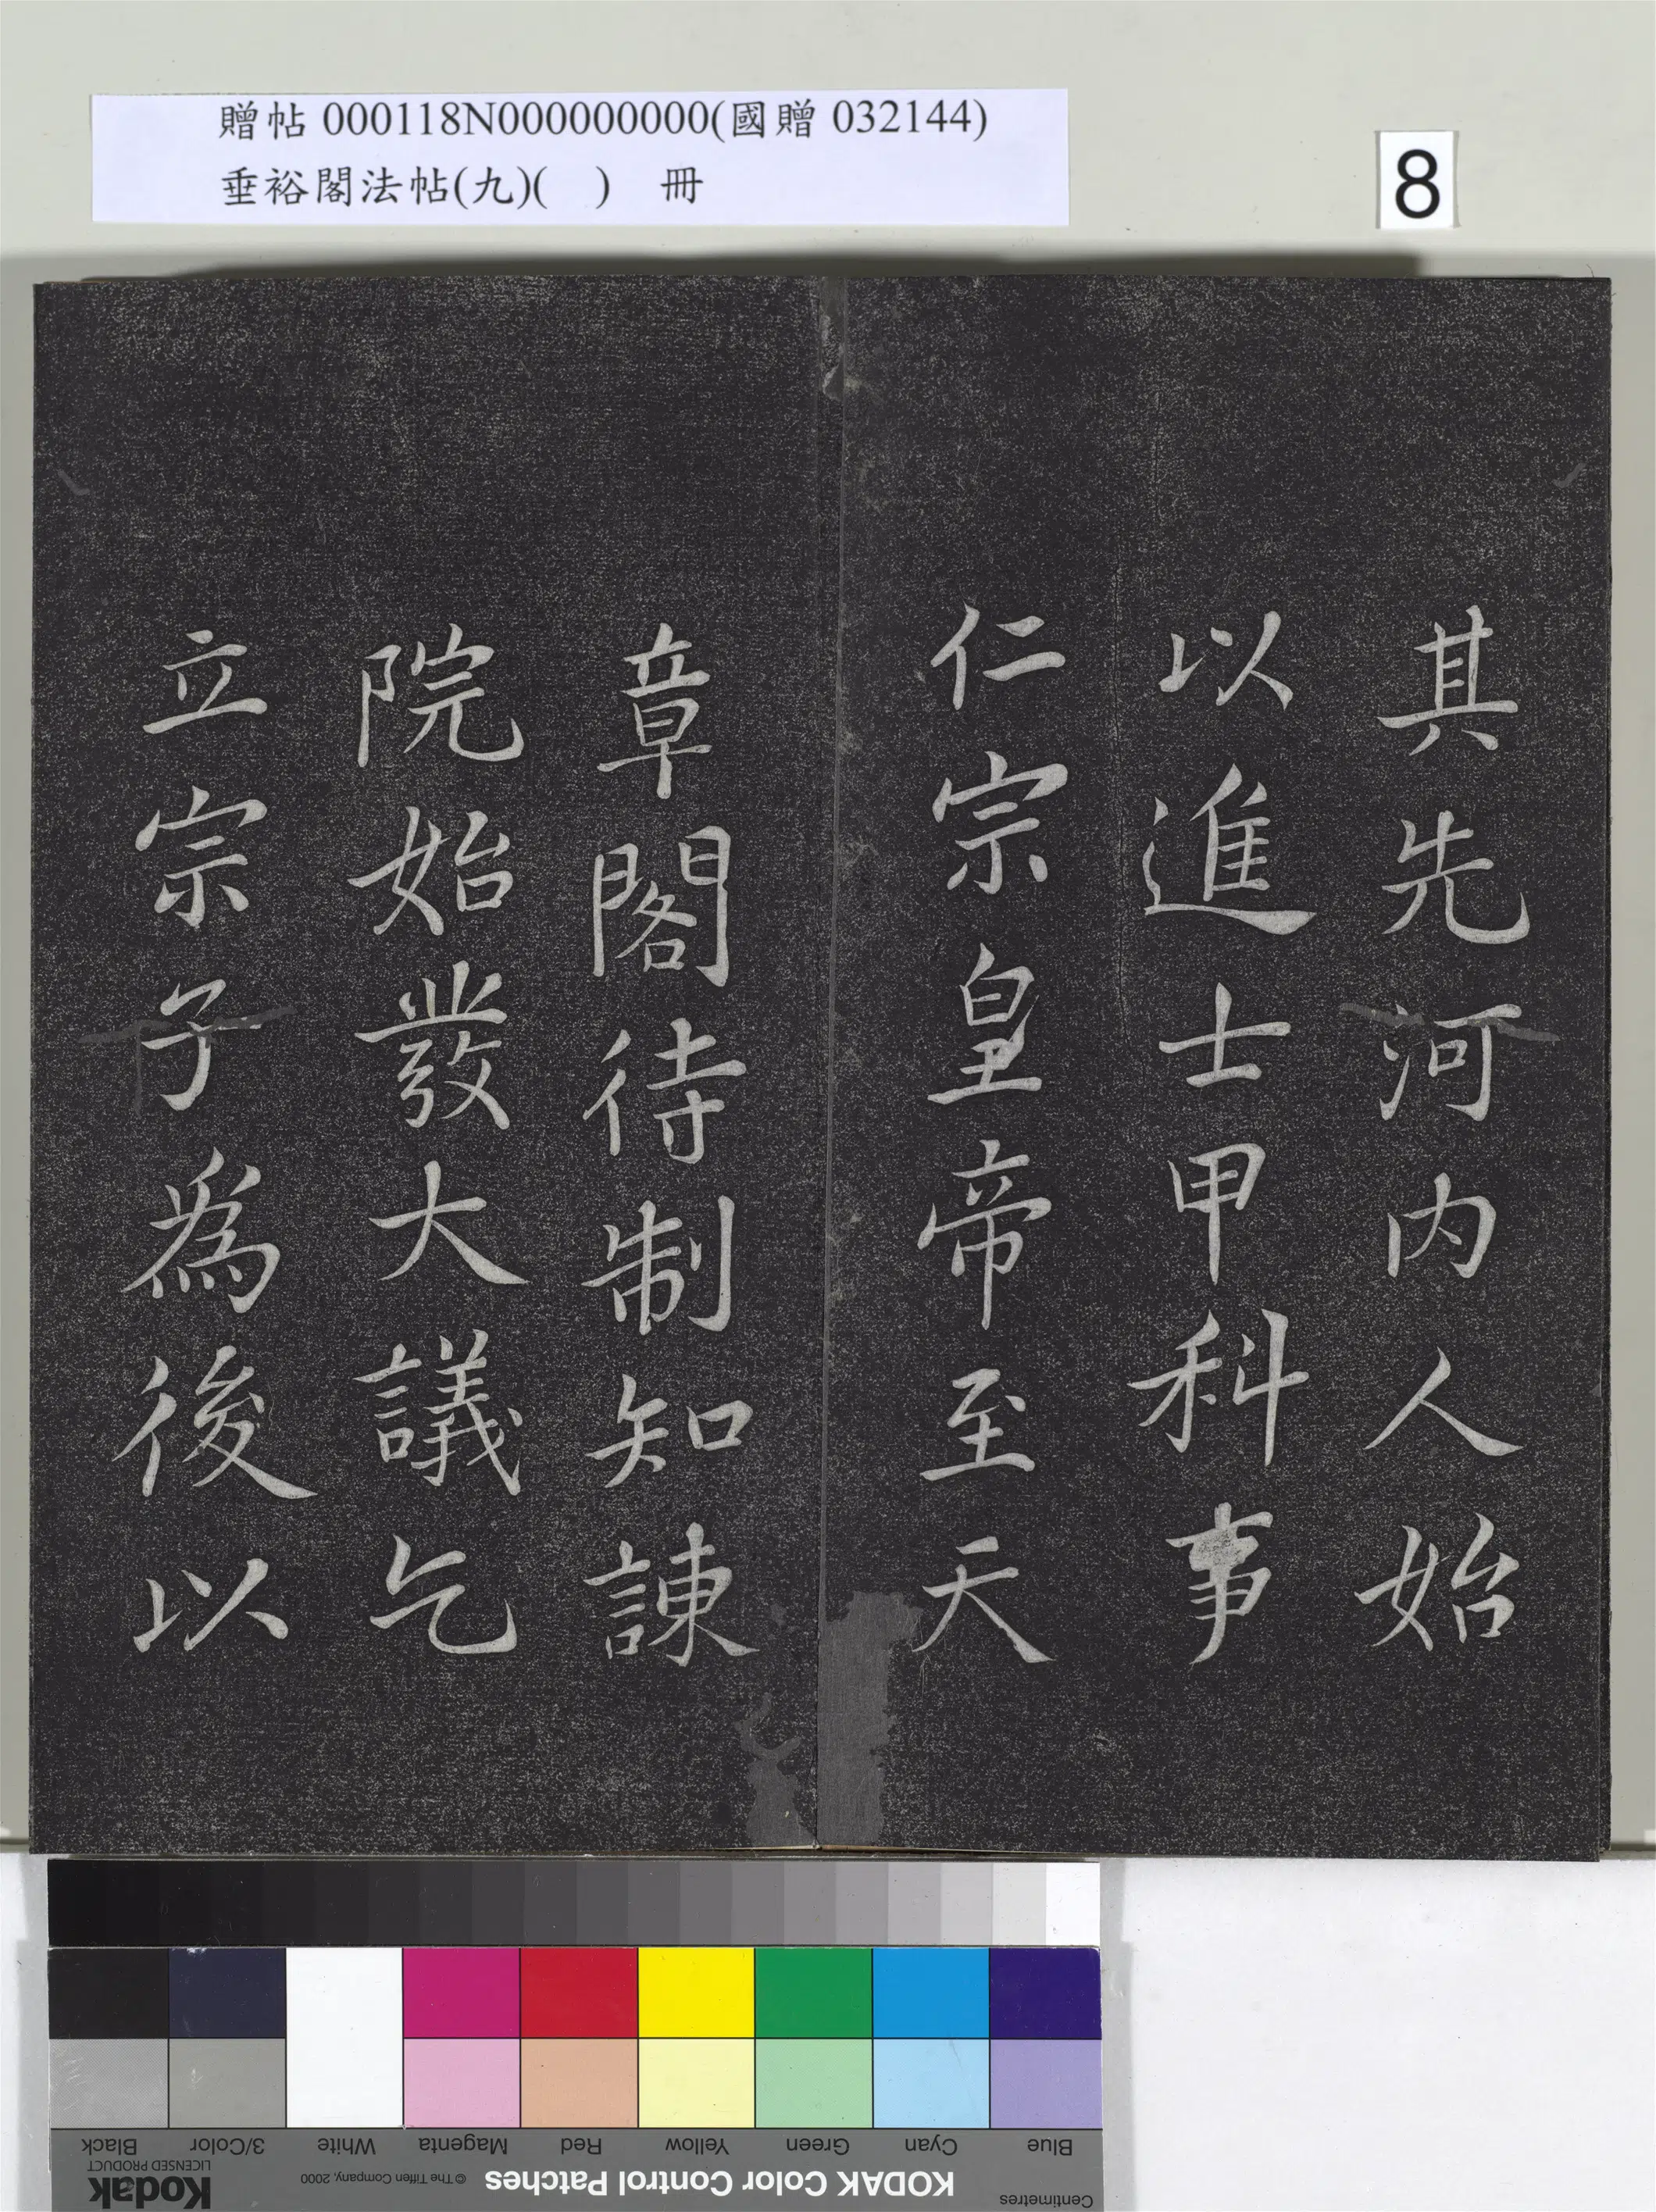 贈帖 000118N000000000(國贈 032144)
垂裕閣法帖(九)( ) 冊
8
其先河内人始
以進士甲科事
仁宗皇帝至天
章閣待制知諫
院始發大議乞
立宗子為後以
Blue Cyan Green Yellow Red Magenta White 3/Color Black
Centimetres KODAK Color Control Patches © The Tiffen Company, 2000 Kodak
LICENSED PRODUCT